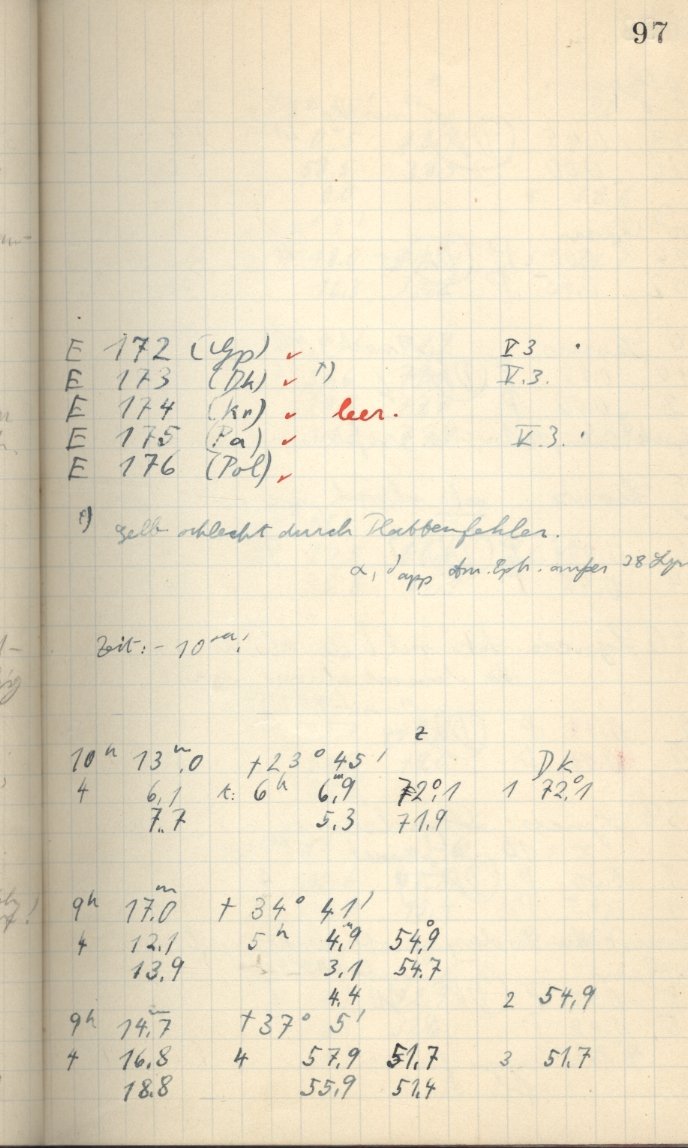 97
E 172 (Gp) ✓ V 3 .
E 173 (Dk) ✓ 1) V.3.
E 174 (Kr) ✓ leer.
E 175 (Pa) ✓ V.3. .
E 176 (Pol) ✓
1) gelb schlecht durch Plattenfehler.
α, δ app Am. Eph. außer 38 Lyn
Zeit: - 10
z
10h 13m,0 +23° 45' Dk
4 6,1 t: 6h 6m,9 72°,1 1 72°,1
7,7 5,3 71,9
9h 17m,0 + 34° 41'
4 12,1 5h 4m,9 54°,9
13,9 3,1 54,7
4,4 2 54,9
9h 14m,7 +37° 5'
4 16,8 4 57,9 51,7 3 51,7
18,8 55,9 51,4